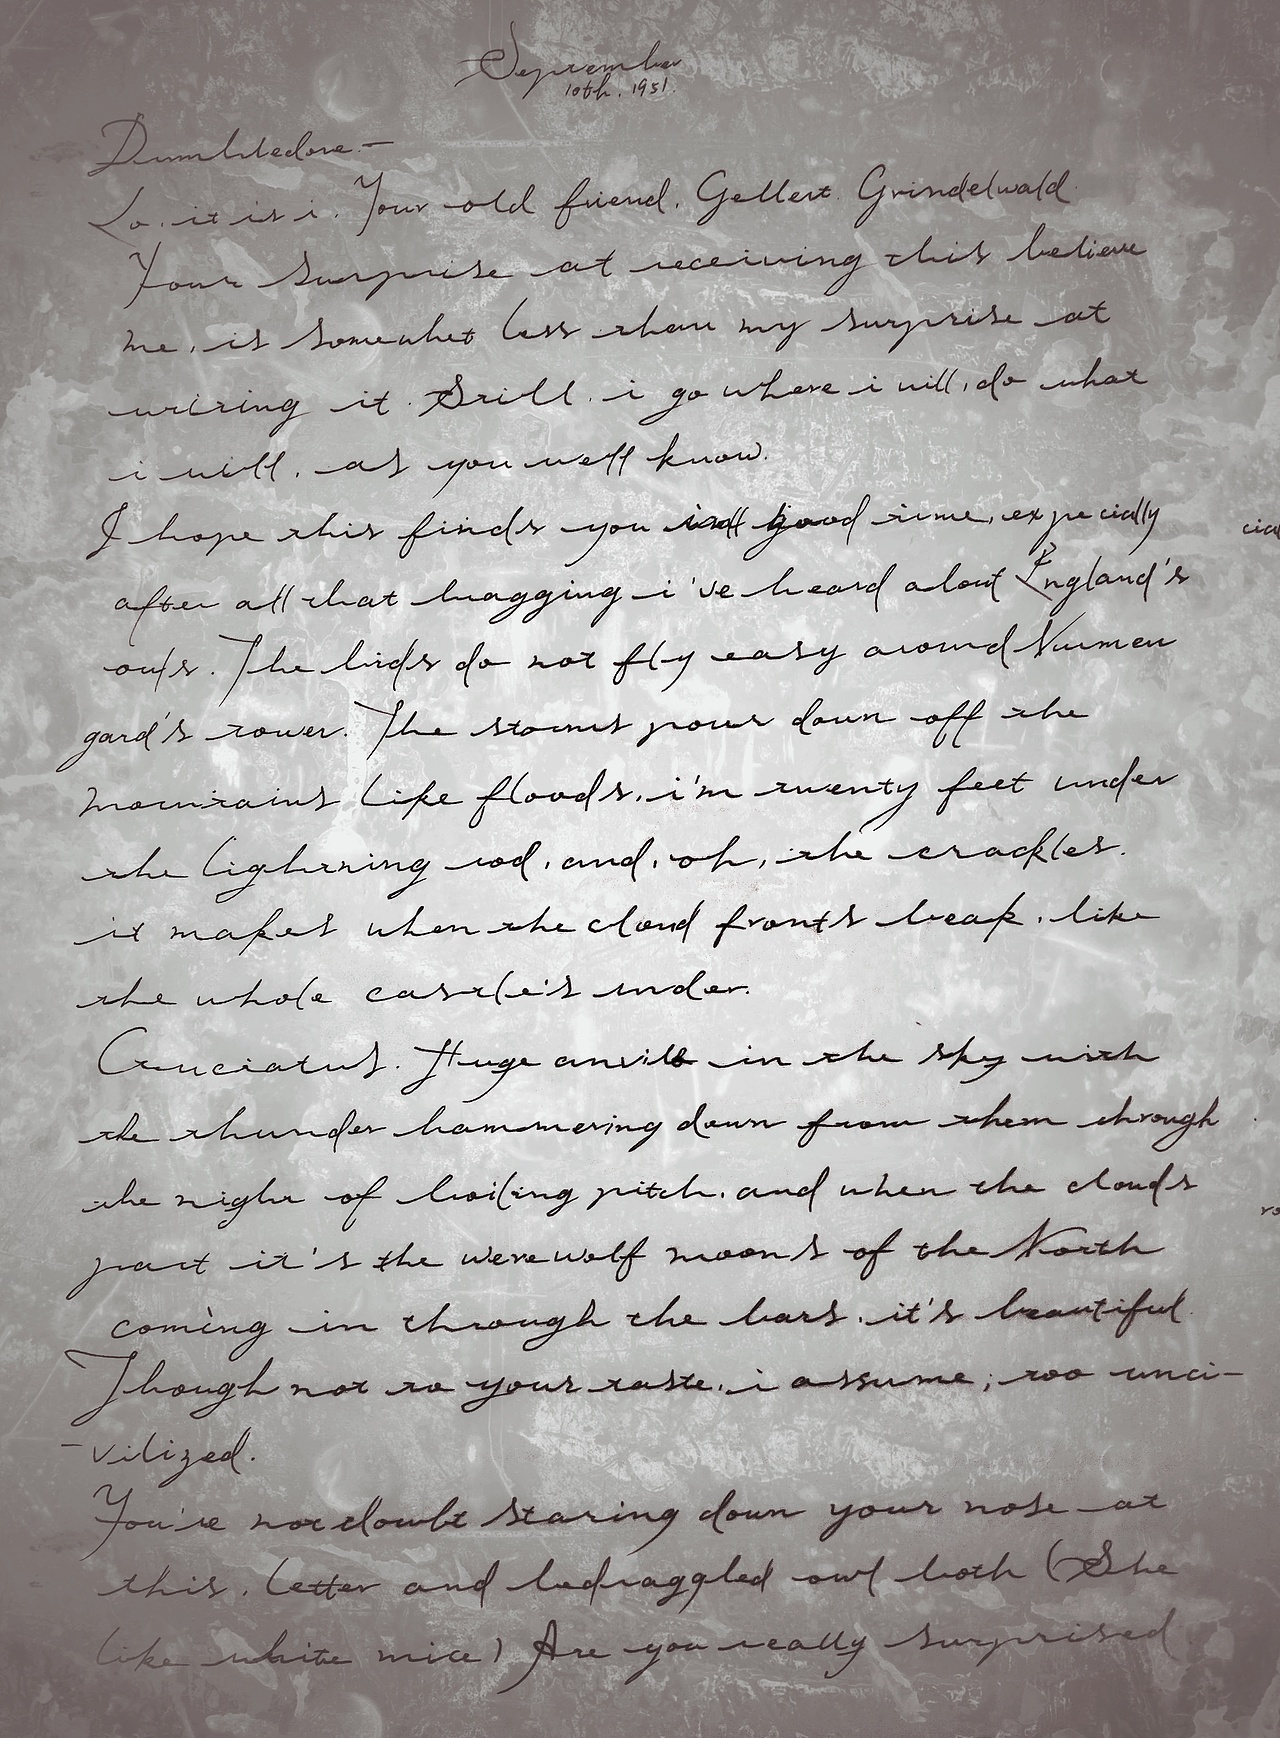 September
10th. 1951.
Dumbledore.—
Lo. it is i. Your old friend. Gellert Grindelwald
Your surprise at receiving this believe
me, is somewhat less than my surprise at
writing it. Still. i go where i will, do what
i will, as you well know.
I hope this finds you good time, expecially
cial
after all that bragging i've heard about England's
owls. The birds do not fly easy around Nurmen
gard's tower. The storms pour down off the
mountains like floods, i'm twenty feet under
the lightning rod, and, oh, the crackles.
it makes when the cloud fronts break, like
the whole castle's under.
Cruciatus. Huge anvils in the sky with
the thunder hammering down from them through
the night of boiling pitch, and when the clouds
ro
part it's the werewolf moons of the North
coming in through the bars, it's beautiful
Though not to your taste, i assume; too unci-
-vilized.
You're not doubt staring down your nose at
this. letter and bedraggled owl both (She
like white mice) Are you really surprised